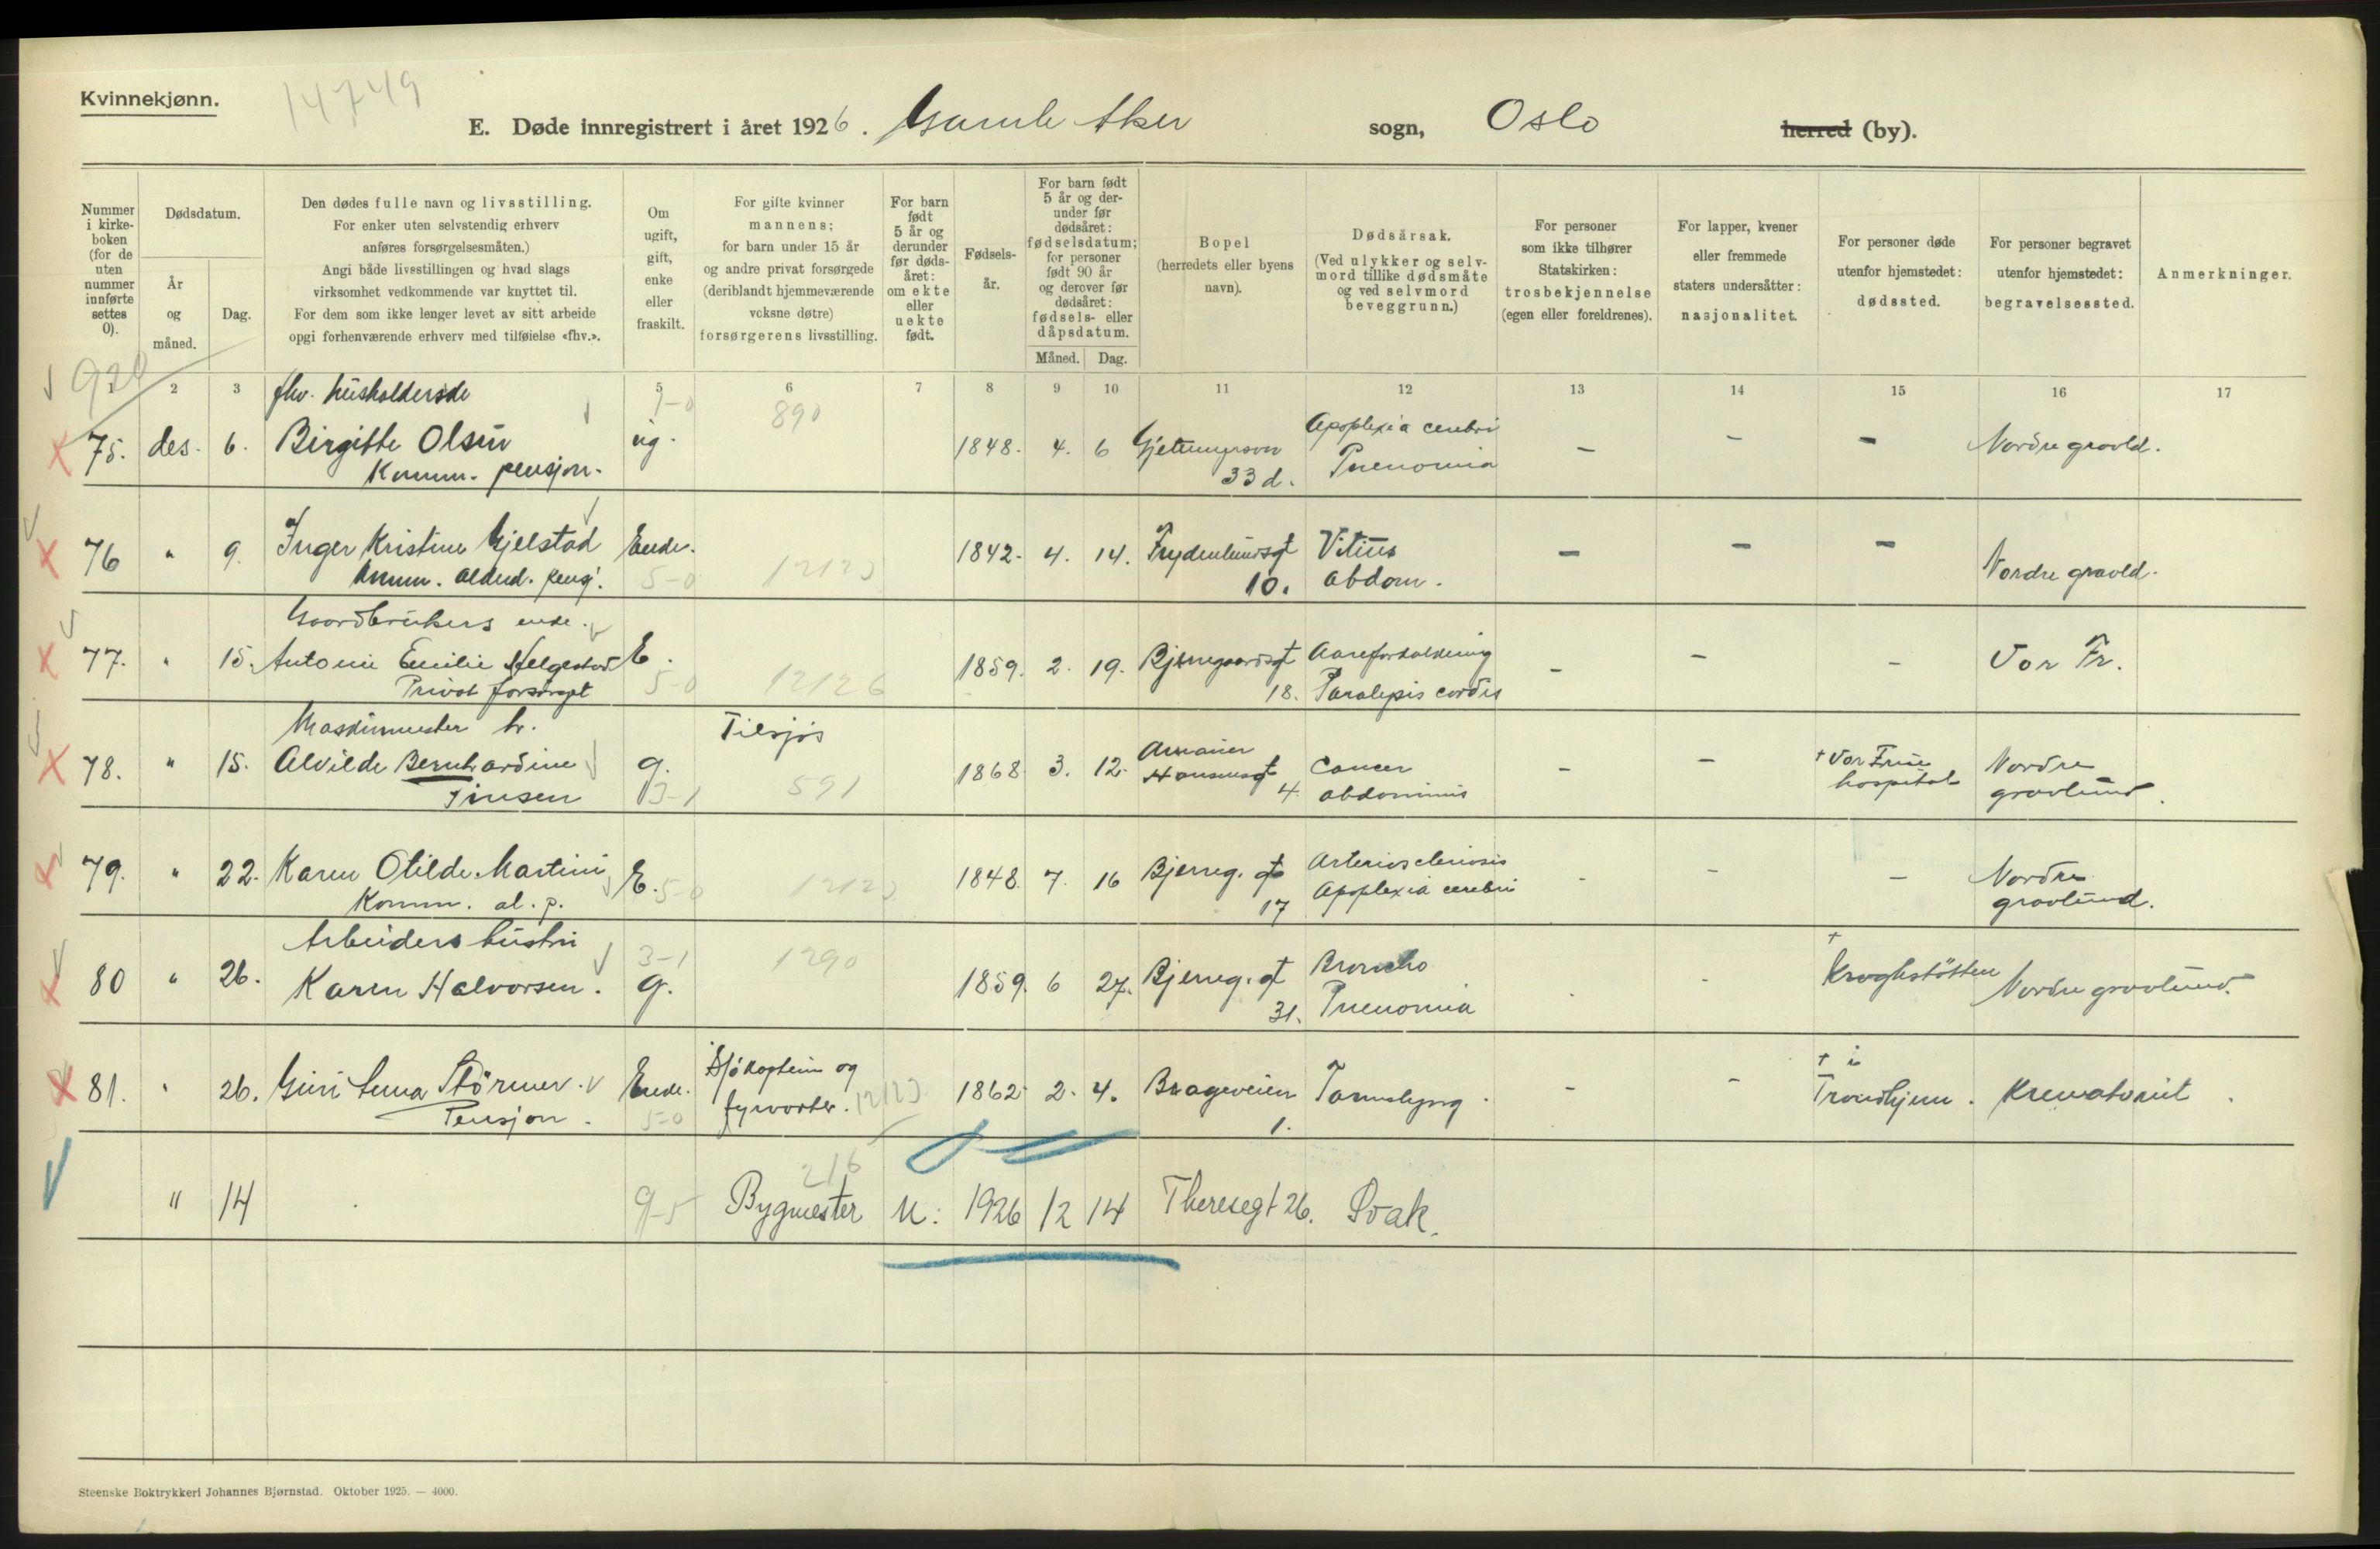 Kvinnekjønn.
14749
E. Døde innregistrert i året 1926. Gamle Aker sogn, Oslo herred (by).
Nummer i kirkeboken (for de uten nummer innførte settes 0).
Dødsdatum.
År og måned.
Dag.
Den dødes fulle navn og livsstilling.
For enker uten selvstendig erhverv anføres forsørgelsesmåten.)
Angi både livsstillingen og hvad slags virksomhet vedkommende var knyttet til.
For dem som ikke lenger levet av sitt arbeide opgi forhenværende erhverv med tilføielse «fhv.».
Om ugift, gift, enke eller fraskilt.
For gifte kvinner mannens; for barn under 15 år og andre privat forsørgede (deriblandt hjemmeværende voksne døtre) forsørgerens livsstilling.
For barn født 5 år og derunder før dødsåret: om ekte eller uekte født.
Fødselsår.
For barn født 5 år og derunder før dødsåret: fødselsdatum; for personer født 90 år og derover før dødsåret: fødsels- eller dåpsdatum.
Måned. Dag.
Bopel (herredets eller byens navn).
Dødsårsak. (Ved ulykker og selvmord tillike dødsmåte og ved selvmord beveggrunn.)
For personer som ikke tilhører Statskirken: trosbekjennelse (egen eller foreldrenes).
For lapper, kvener eller fremmede staters undersåtter: nasjonalitet.
For personer døde utenfor hjemstedet: dødssted.
For personer begravet utenfor hjemstedet: begravelsessted.
Anmerkninger.
1 2 3 5 6 7 8 9 10 11 12 13 14 15 16 17
fhv. husholderske
890
75. des. 6. Birgitte Olsen ug. 1848. 4. 6 33 d. Apoplexia cerebri Pnenomia - - - Nordre gravld.
Komm. pensjon.
76 " 9. Inger Kristine Gjelstad Enke. 5-0 12123 1842. 4. 14. Frydenlundsgt 10. Vitius abdom. - - - Nordre gravld.
Komm. alderd. pensj.
Gaardbrukers enke.
77. " 15. Antonie Emilie Helgestad E. 5-0 12126 1859. 2. 19. Bjerregaardsgt 18. Aareforkalkning Paralysis cordis - - - Vor Fr.
Privat forsørget
Maskinmester h.
78. " 15. Alvilde Bernhardine Jensen g. 3-1 Tilsjøs 591 1868 3. 12. Amaier Hansensgt 4. Cancer abdominis - - + Vor Frue hospital Nordre gravlund.
79. " 22. Karen Otilde Martini E. 5-0 12123 1848. 7. 16 Bjerreg. gt 17 Arteriosclerosis Apoplexia cerebri - - - Nordre gravlund.
Komm. al. p.
Arbeiders hustru
80 " 26. Karen Halvorsen. 3-1 g. 1290 1859. 6 27. Bjerreg. gt 31. Broncho Pnenomia + Kroghstøtten Nordre gravlund.
81. " 26. Guri Lena Störmer. Enke. 5-0 Sjökaptein og fyrvorter. 12123 1862 2. 4. Brageveien 1. Tarmslyng. - - + i Trondhjem. Krematoriet.
Pensjon.
" 14 9-5 216 Bygmester U: 1926 12 14 Theresegt 26. Svak.
Steenske Boktrykkeri Johannes Bjørnstad. Oktober 1925. — 4000.